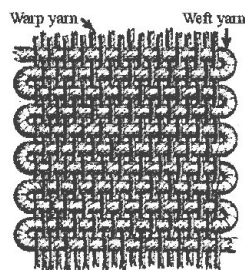 Warp yarn Weft yarn